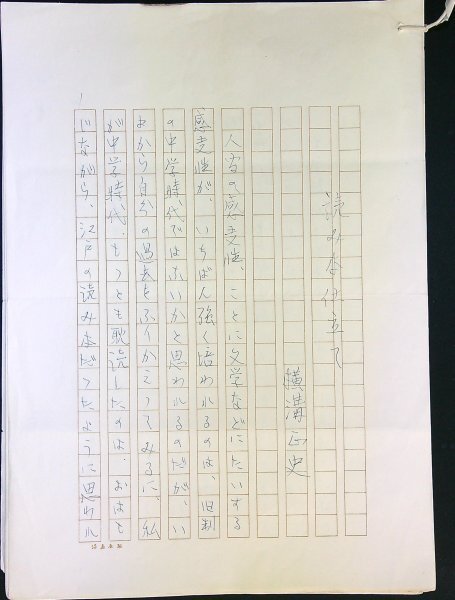 読み本仕立て
横溝正史
人間の感受性、ことに文学などにたいする
感受性が、いちばん強く培われるのは、旧制
の中学時代ではないかと思われるのだが、い
まから自分の過去をふりかえってみるに、私
が中学時代、もっとも耽読したのは、おはず
じながら、江戸の読み本だったように思われ